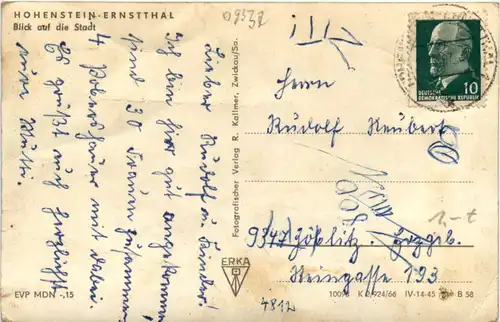 HOHENSTEIN-ERNSTTHAL
Blick auf die Stadt
09337
Lieber Rudolf u. Kinder!
Ich bin hier gut angekommen
sind 30 Frauen zusammen
4 Pobershauer mit dabei.
Es grüßt euch herzlichst
eure Mutti.
EVP MDN -,15
Fotografischer Verlag R. Kallmer, Zwickau/Sa.
ERKA
4812
DEUTSCHE
DEMOKRATISCHE REPUBLIK
10
Herrn
Rudolf Neubert
9347 Zöblitz. Erzgeb.
Kerngasse 193
1.-t
K 2/924/66 IV-14-45 B 58